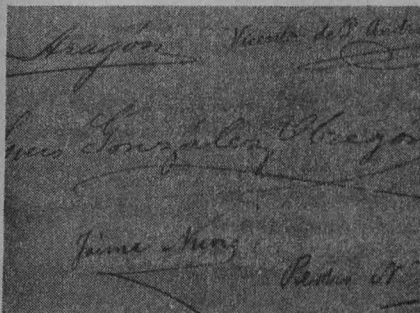 Aragón
Vicente de P. Andra
Luis González Obregón
Jaime Nunó
Pedro N